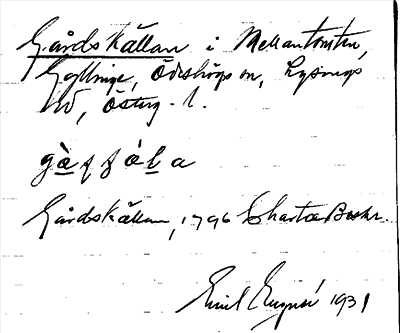 Gårdskällan i Mellantomten,
Gyllinge, Ödeshögs sn, Lysings
hd, Österg. l.
Gårdskällan, 1796 Charta Beskr.
Emil 1931